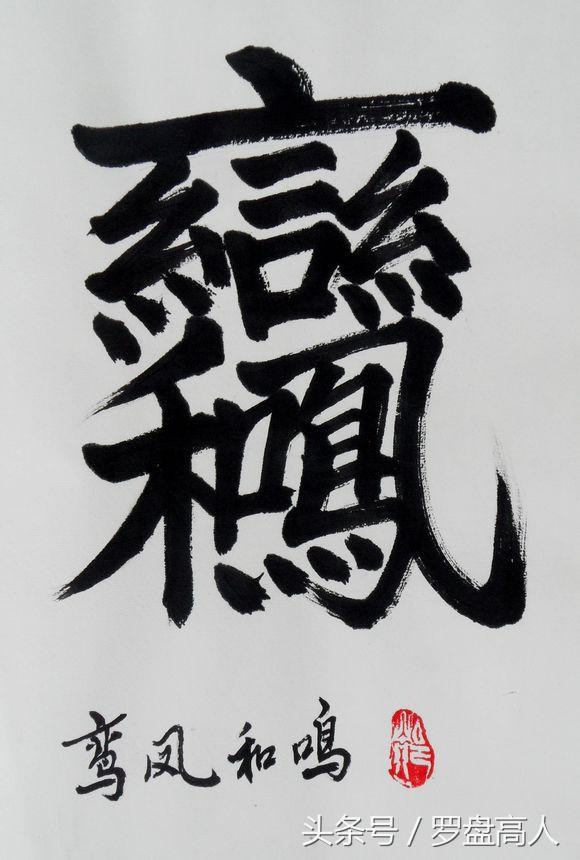 鸾凤和鸣
头条号 / 罗盘高人